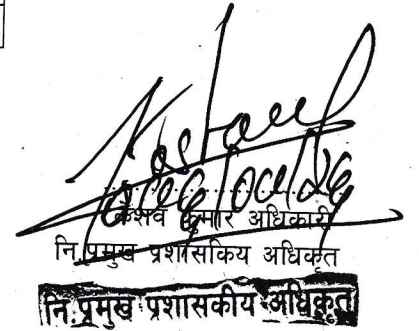 केशव कुमार अधिकारी
नि.प्रमुख प्रशासकिय अधिकृत
नि.प्रमुख प्रशासकीय अधिकृत